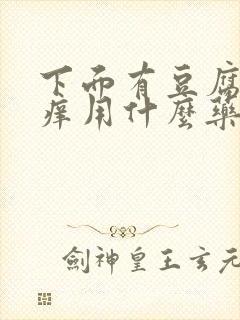 下面有豆腐
痒用什麼藥
劍神皇王玄元